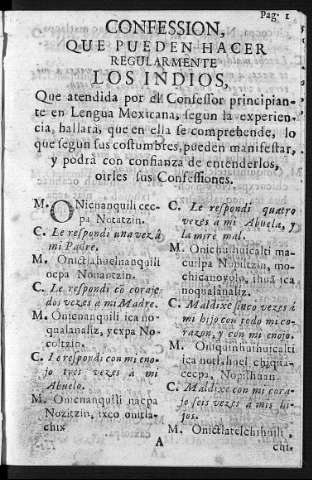 Pag. 1
CONFESSION,
QUE PUEDEN HACER
REGULARMENTE
LOS INDIOS,
Que atendida por él Confessor principian-
te en Lengua Mexicana, segun la experien-
cia, hallarà, que en ella se comprehende, lo
que segun sus costumbres, pueden manifestar,
y podrà con confianza de entenderlos,
oirles sus Confessiones.
M. ONicnanquili cec-
pa Notatzin.
C. Le respondi una vez à
mi Padre.
M. Onictlahuelnanquili
ocpa Nonantzin.
C. Le respondi cõ corage
dos vezes à mi Madre.
M. Onicnanquili ica no-
qualanaliz, yexpa No-
coltzin.
C. Le respondi con mi eno-
jo tres vezes a mi
Abuelo.
M. Onicnanquili nacpa
Nozitzin, ixco onitla-
chix
C. Le respondi quatro
vezes à mi Abuela, y
la mirè mal.
M. Onichuihuicalti ma-
cuilpa Nopiltzin, mo-
chicanoyolo, ihuã ica
noqualanaliz.
C. Maldixe sinco vezes à
mi hijo con todo mi co-
razon, y con mi enojo.
M. Oniquinhuihuicalti
ica notlahuel chiqua-
cecpa, Nopilhuan.
C. Maldixe con mi cora-
je seis vezes à mis hi-
jos.
M.
A